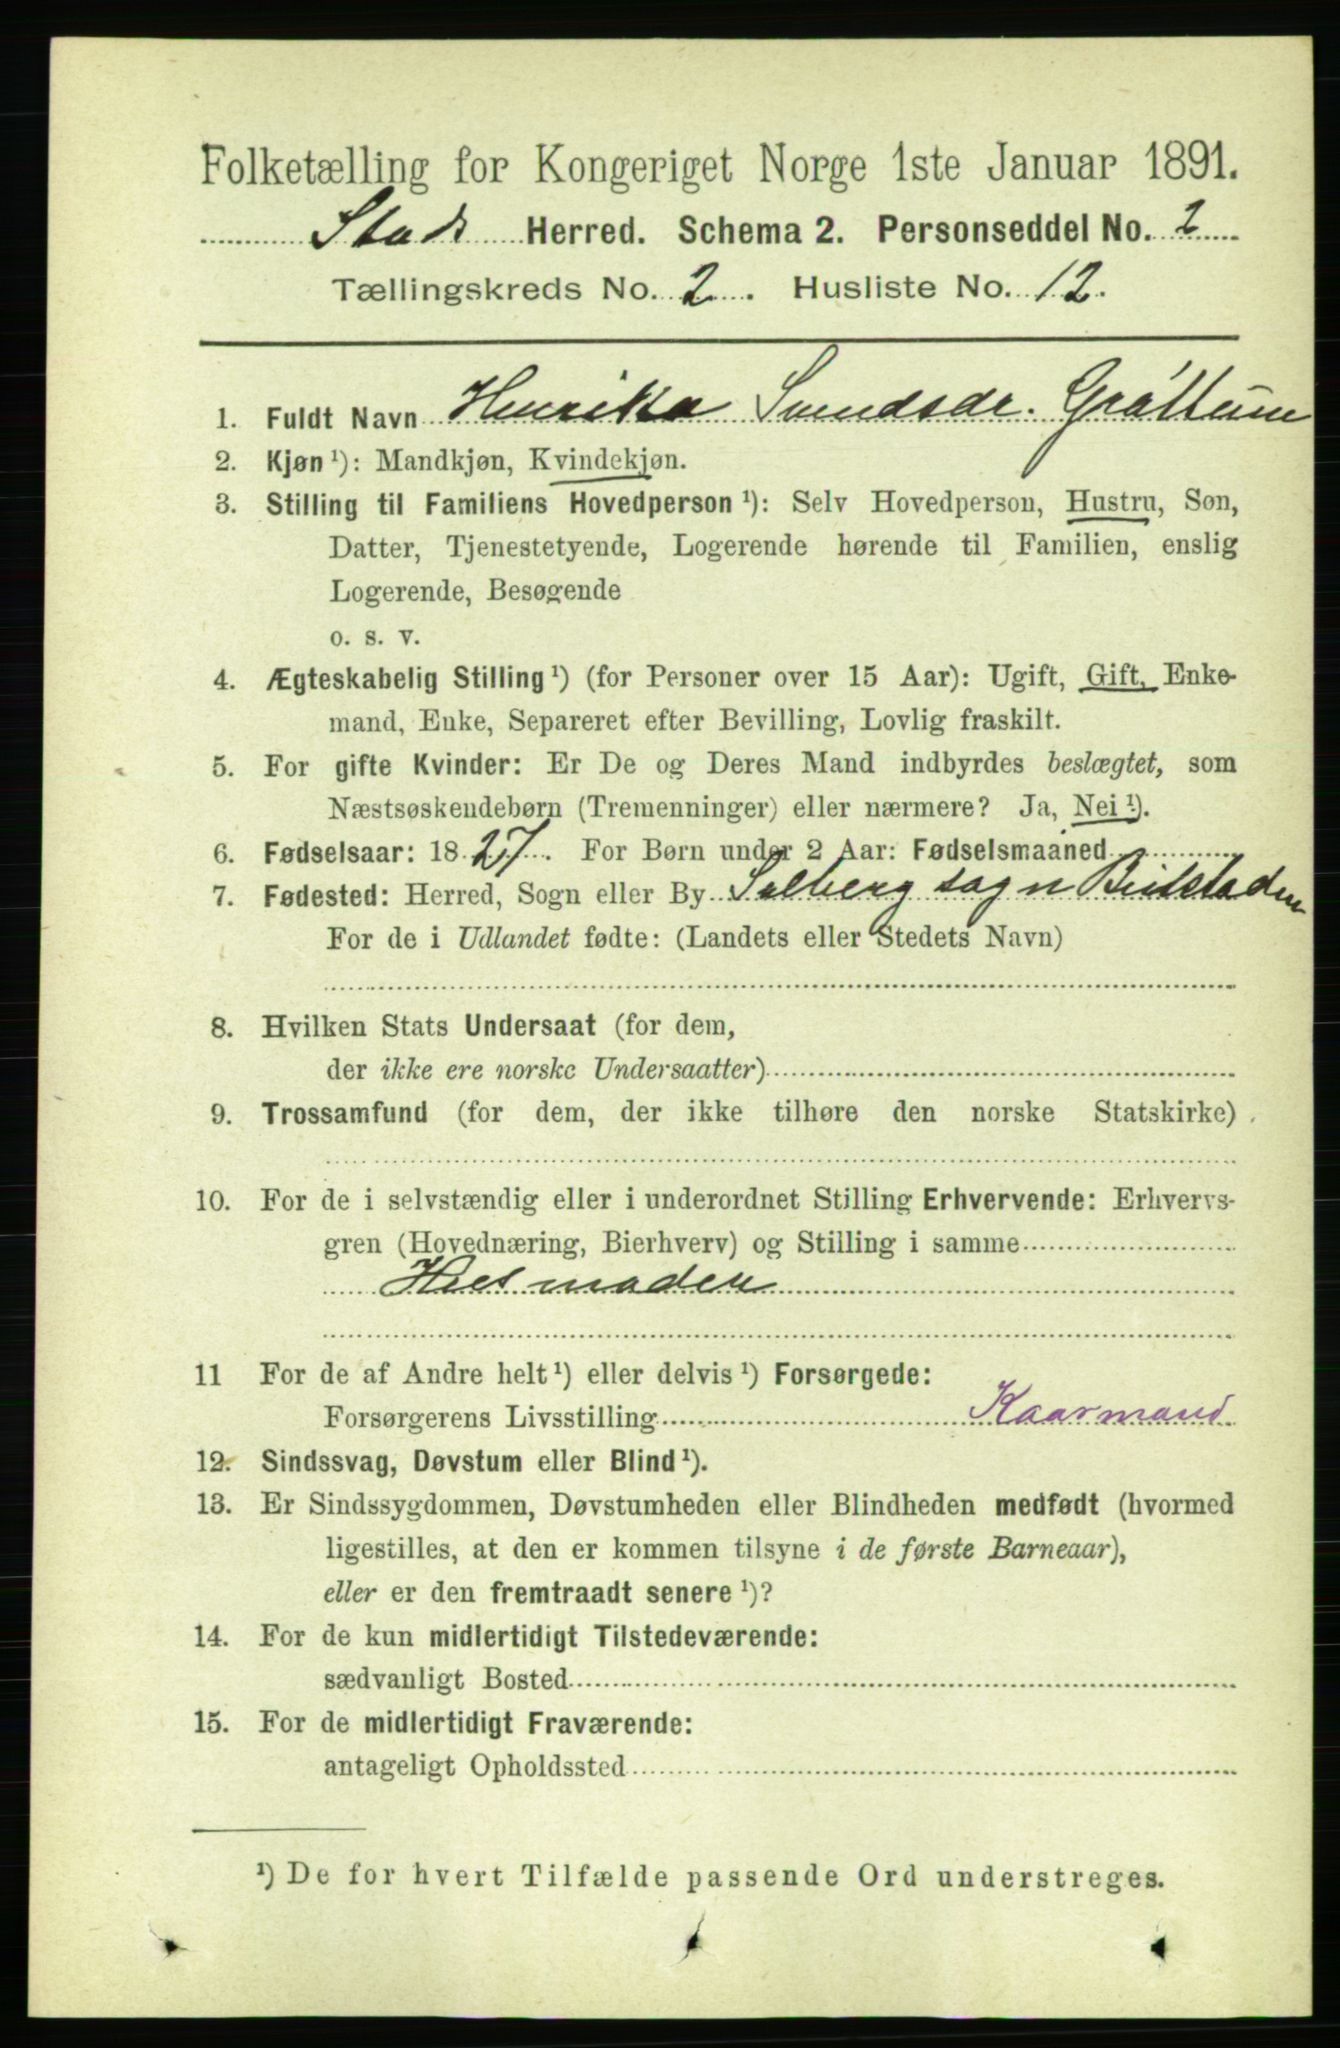 Folketælling for Kongeriget Norge 1ste Januar 1891.
Stods Herred. Schema 2. Personseddel No. 2
Tællingskreds No. 2. Husliste No. 12.
1. Fuldt Navn Henrika Svendsdr. Gráttum
2. Kjøn ¹): Mandkjøn, Kvindekjøn.
3. Stilling til Familiens Hovedperson ¹): Selv Hovedperson, Hustru, Søn,
Datter, Tjenestetyende, Logerende hørende til Familien, enslig
Logerende, Besøgende
o. s. v.
4. Ægteskabelig Stilling ¹) (for Personer over 15 Aar): Ugift, Gift, Enke-
mand, Enke, Separeret efter Bevilling, Lovlig fraskilt.
5. For gifte Kvinder: Er De og Deres Mand indbyrdes beslægtet, som
Næstsøskendebørn (Tremenninger) eller nærmere? Ja, Nei ¹).
6. Fødselsaar: 1827. For Børn under 2 Aar: Fødselsmaaned
7. Fødested: Herred, Sogn eller By Solberg sogn Beitstaden
For de i Udlandet fødte: (Landets eller Stedets Navn)
8. Hvilken Stats Undersaat (for dem,
der ikke ere norske Undersaatter)
9. Trossamfund (for dem, der ikke tilhøre den norske Statskirke)
10. For de i selvstændig eller i underordnet Stilling Erhvervende: Erhvervs-
gren (Hovednæring, Bierhverv) og Stilling i samme
Husmoder
11 For de af Andre helt ¹) eller delvis ¹) Forsørgede:
Forsørgerens Livsstilling Kaarmand
12. Sindssvag, Døvstum eller Blind ¹).
13. Er Sindssygdommen, Døvstumheden eller Blindheden medfødt (hvormed
ligestilles, at den er kommen tilsyne i de første Barneaar),
eller er den fremtraadt senere ¹)?
14. For de kun midlertidigt Tilstedeværende:
sædvanligt Bosted
15. For de midlertidigt Fraværende:
antageligt Opholdssted
¹) De for hvert Tilfælde passende Ord understreges.